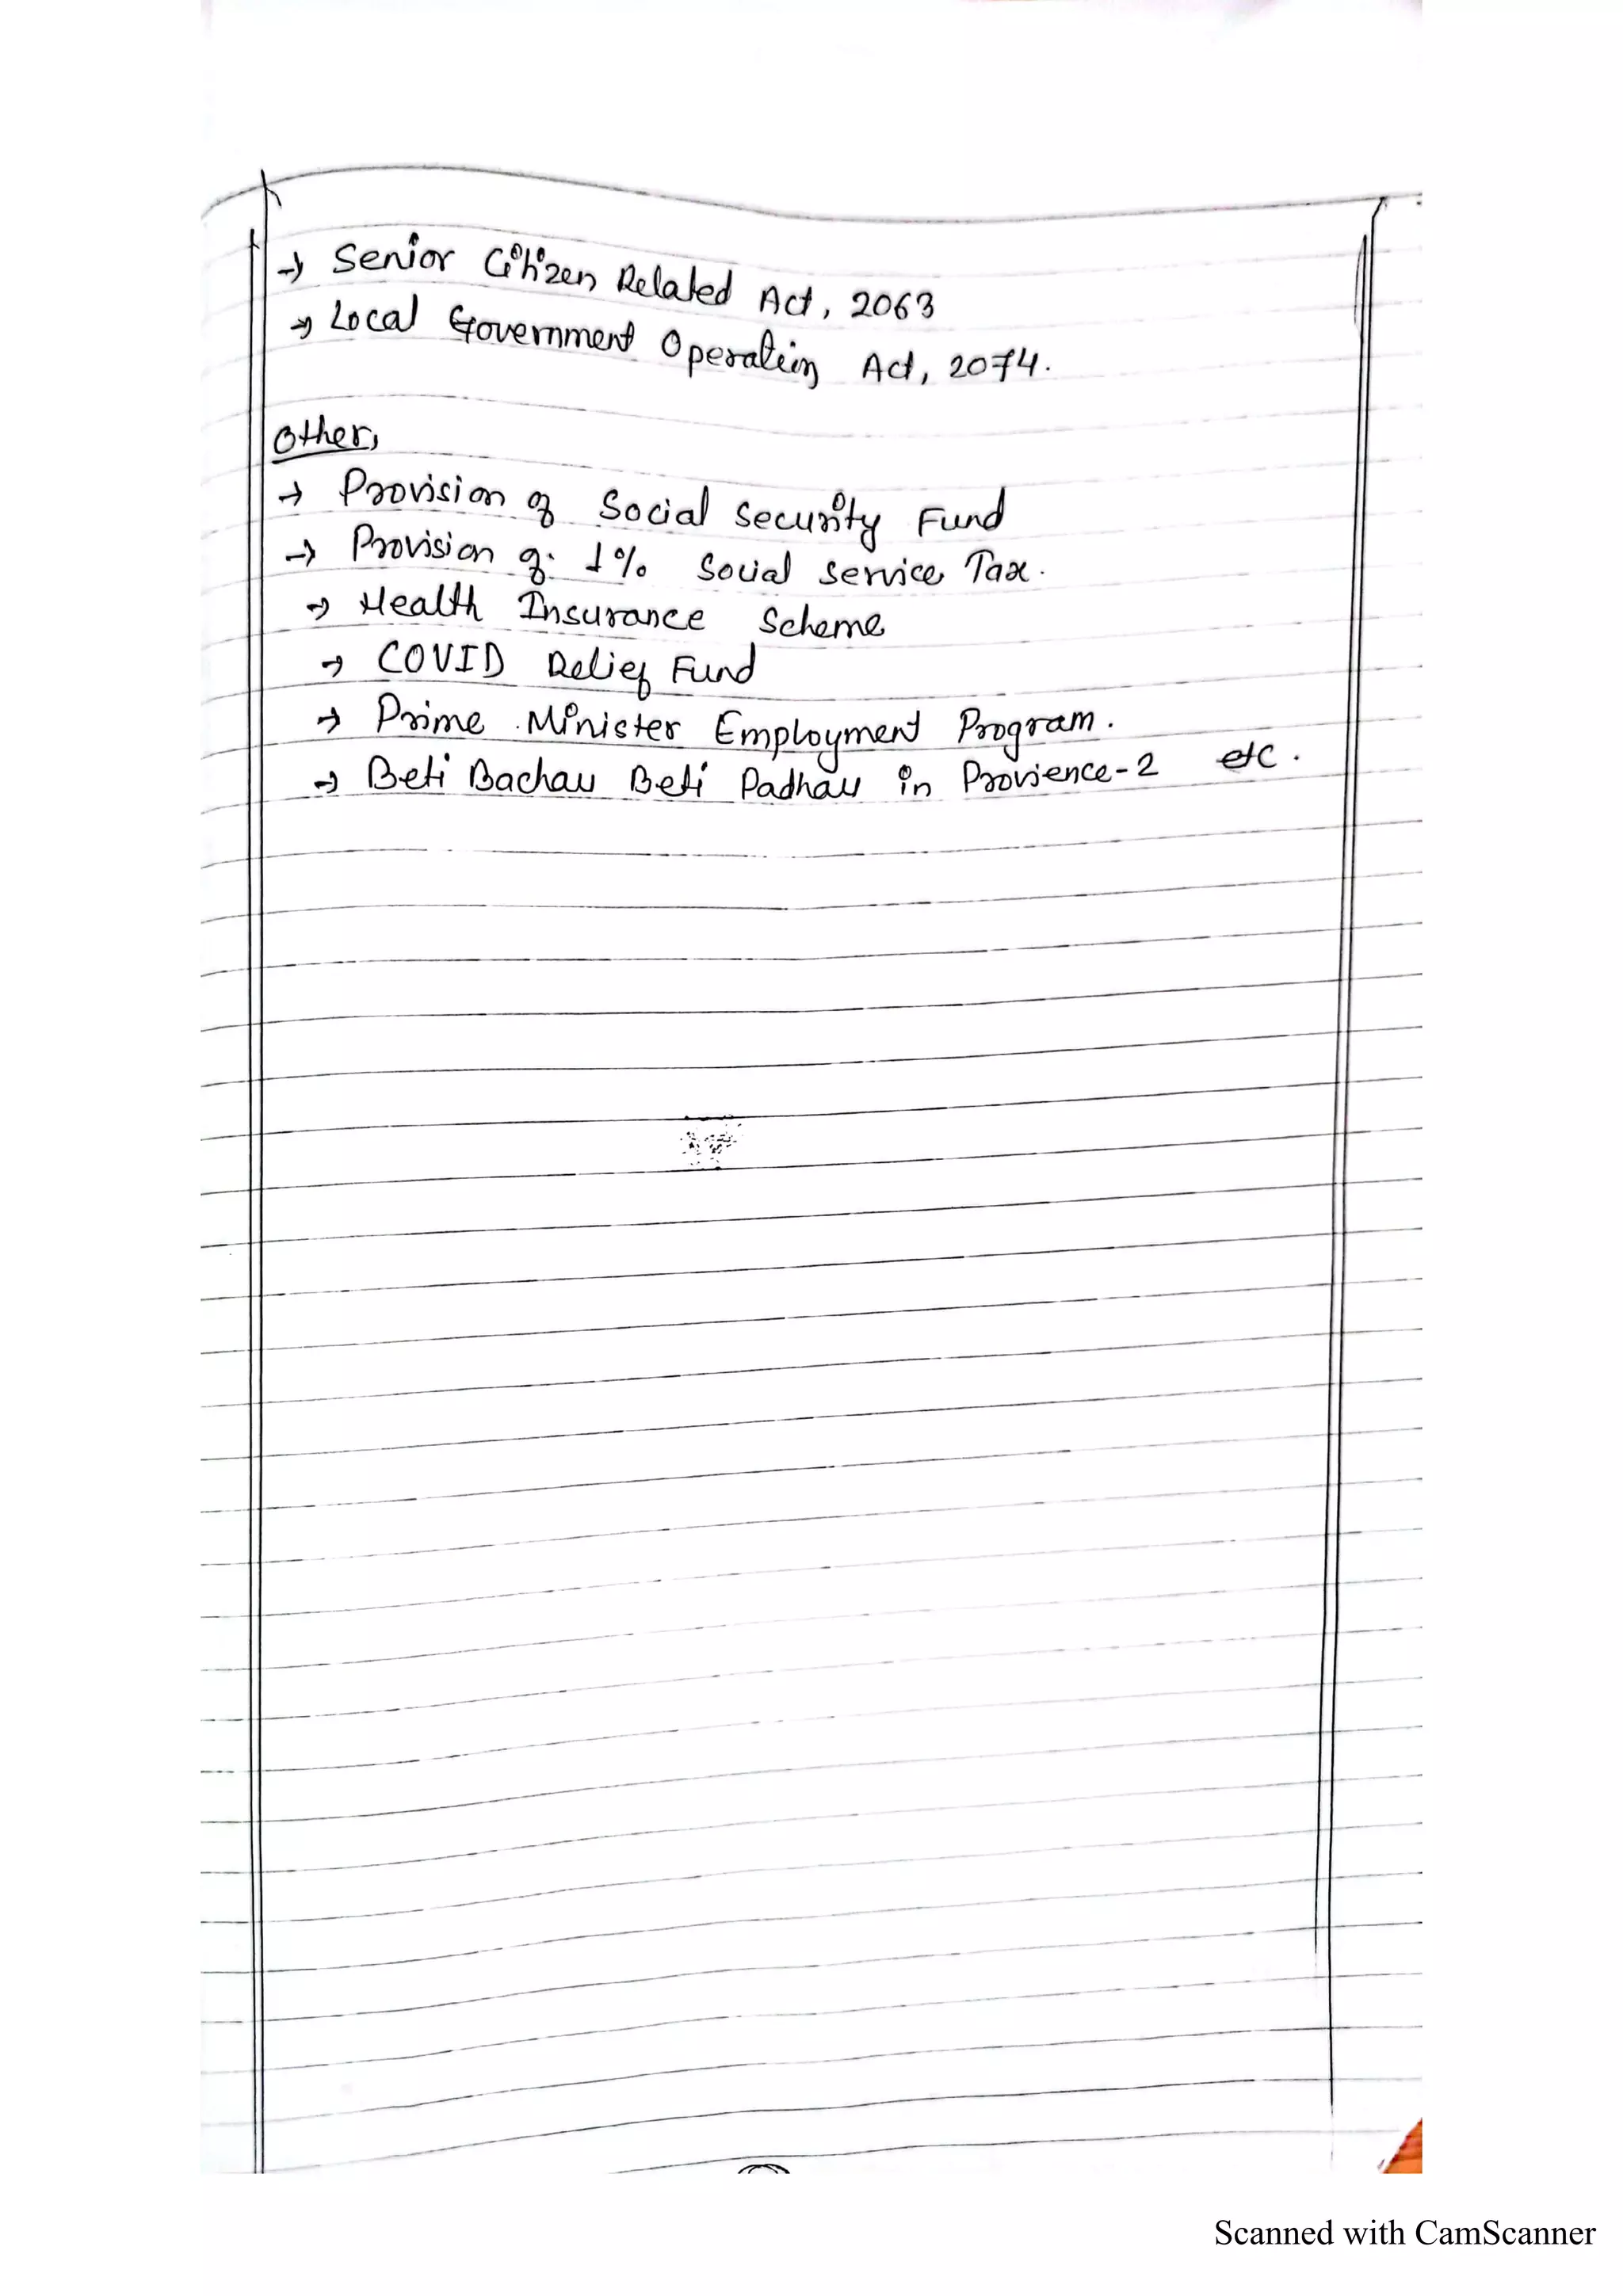 → Senior Citizen Related Act, 2063
→ Local Government Operating Act, 2074.
Other,
→ Provision of Social Security Fund
→ Provision of 1% Social Service Tax.
→ Health Insurance Scheme
→ COVID Relief Fund
→ Prime Minister Employment Program.
→ Beti Bachau Beti Padhau in Provience-2 etc.
Scanned with CamScanner